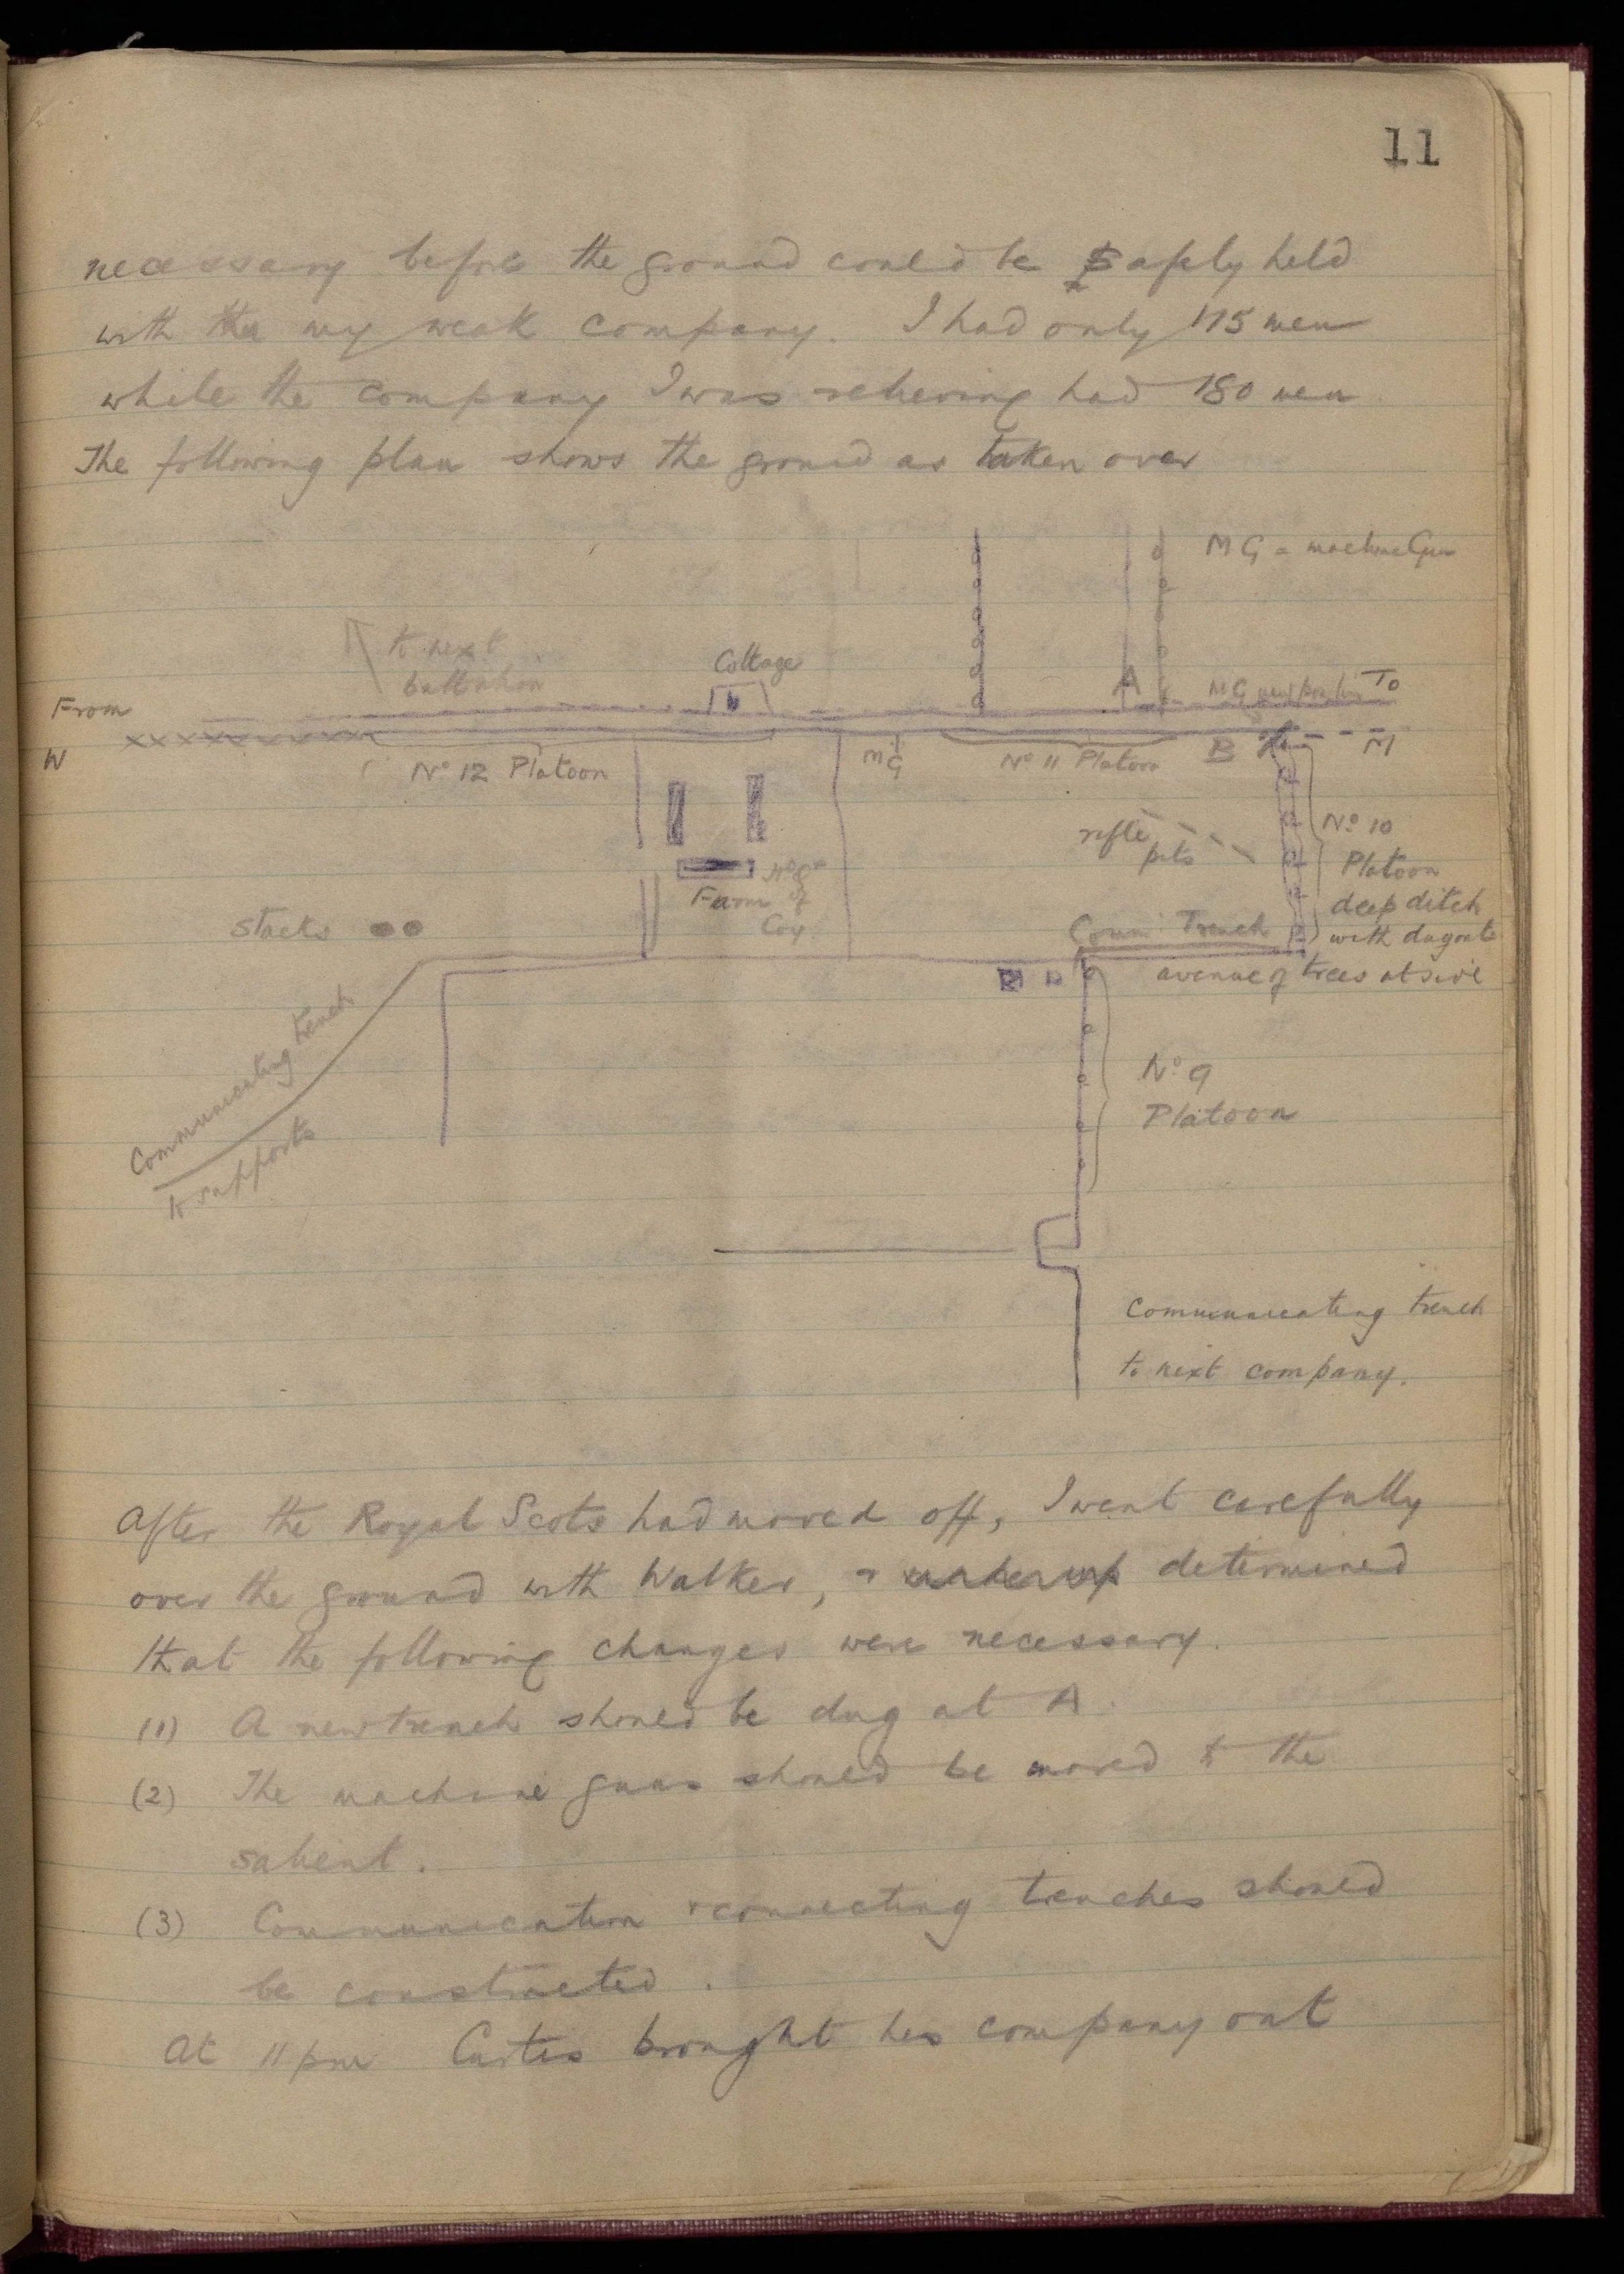 11
necessary before the ground could be safely held
with the my weak company. I had only 115 men
while the company I was relieving had 180 men
The following plan shows the ground as taken over
MG = machine Gun
to next
battalion
Cottage
A
MG new position
To
From
W
No 12 Platoon
MG
No 11 Platoon
B
M
rifle
pits
No 10
Platoon
deep ditch
with dugouts
Farm
Coy
Stacks
Comm Trench
avenue of trees at side
No 9
Platoon
Communicating trench
to supports
Communicating trench
to next company.
After the Royal Scots had moved off, I went carefully
over the ground with Walker, & determined
that the following changes were necessary.
(1) A new trench should be dug at A.
(2) The machine guns should be moved to the
salient.
(3) Communication & connecting trenches should
be constructed.
At 11 pm Curtis brought his company out